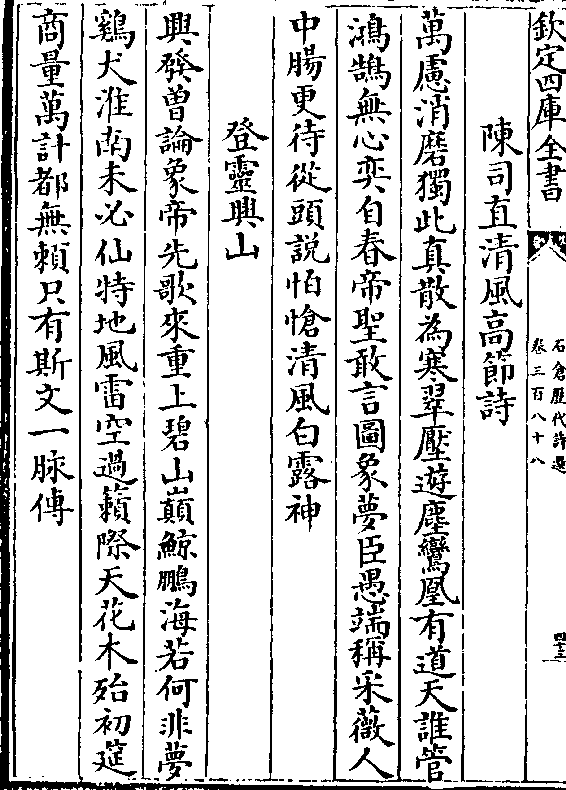 欽定四庫全書
石倉歷代詩選
卷三百八十八
四十三
陳司直清風高節詩
萬慮消磨獨此真散為寒翠壓遊塵鸞凰有道天誰管
鴻鵠無心奕自春帝聖敢言圖象夢臣愚端稱采薇人
中腸更待從頭說怕愴清風白露神
登靈興山
興發曽論象帝先歌來重上碧山巔鯨鵬海若何非夢
鷄犬淮南未必仙特地風雷空過籟際天花木殆初筵
商量萬計都無賴只有斯文一脉傳